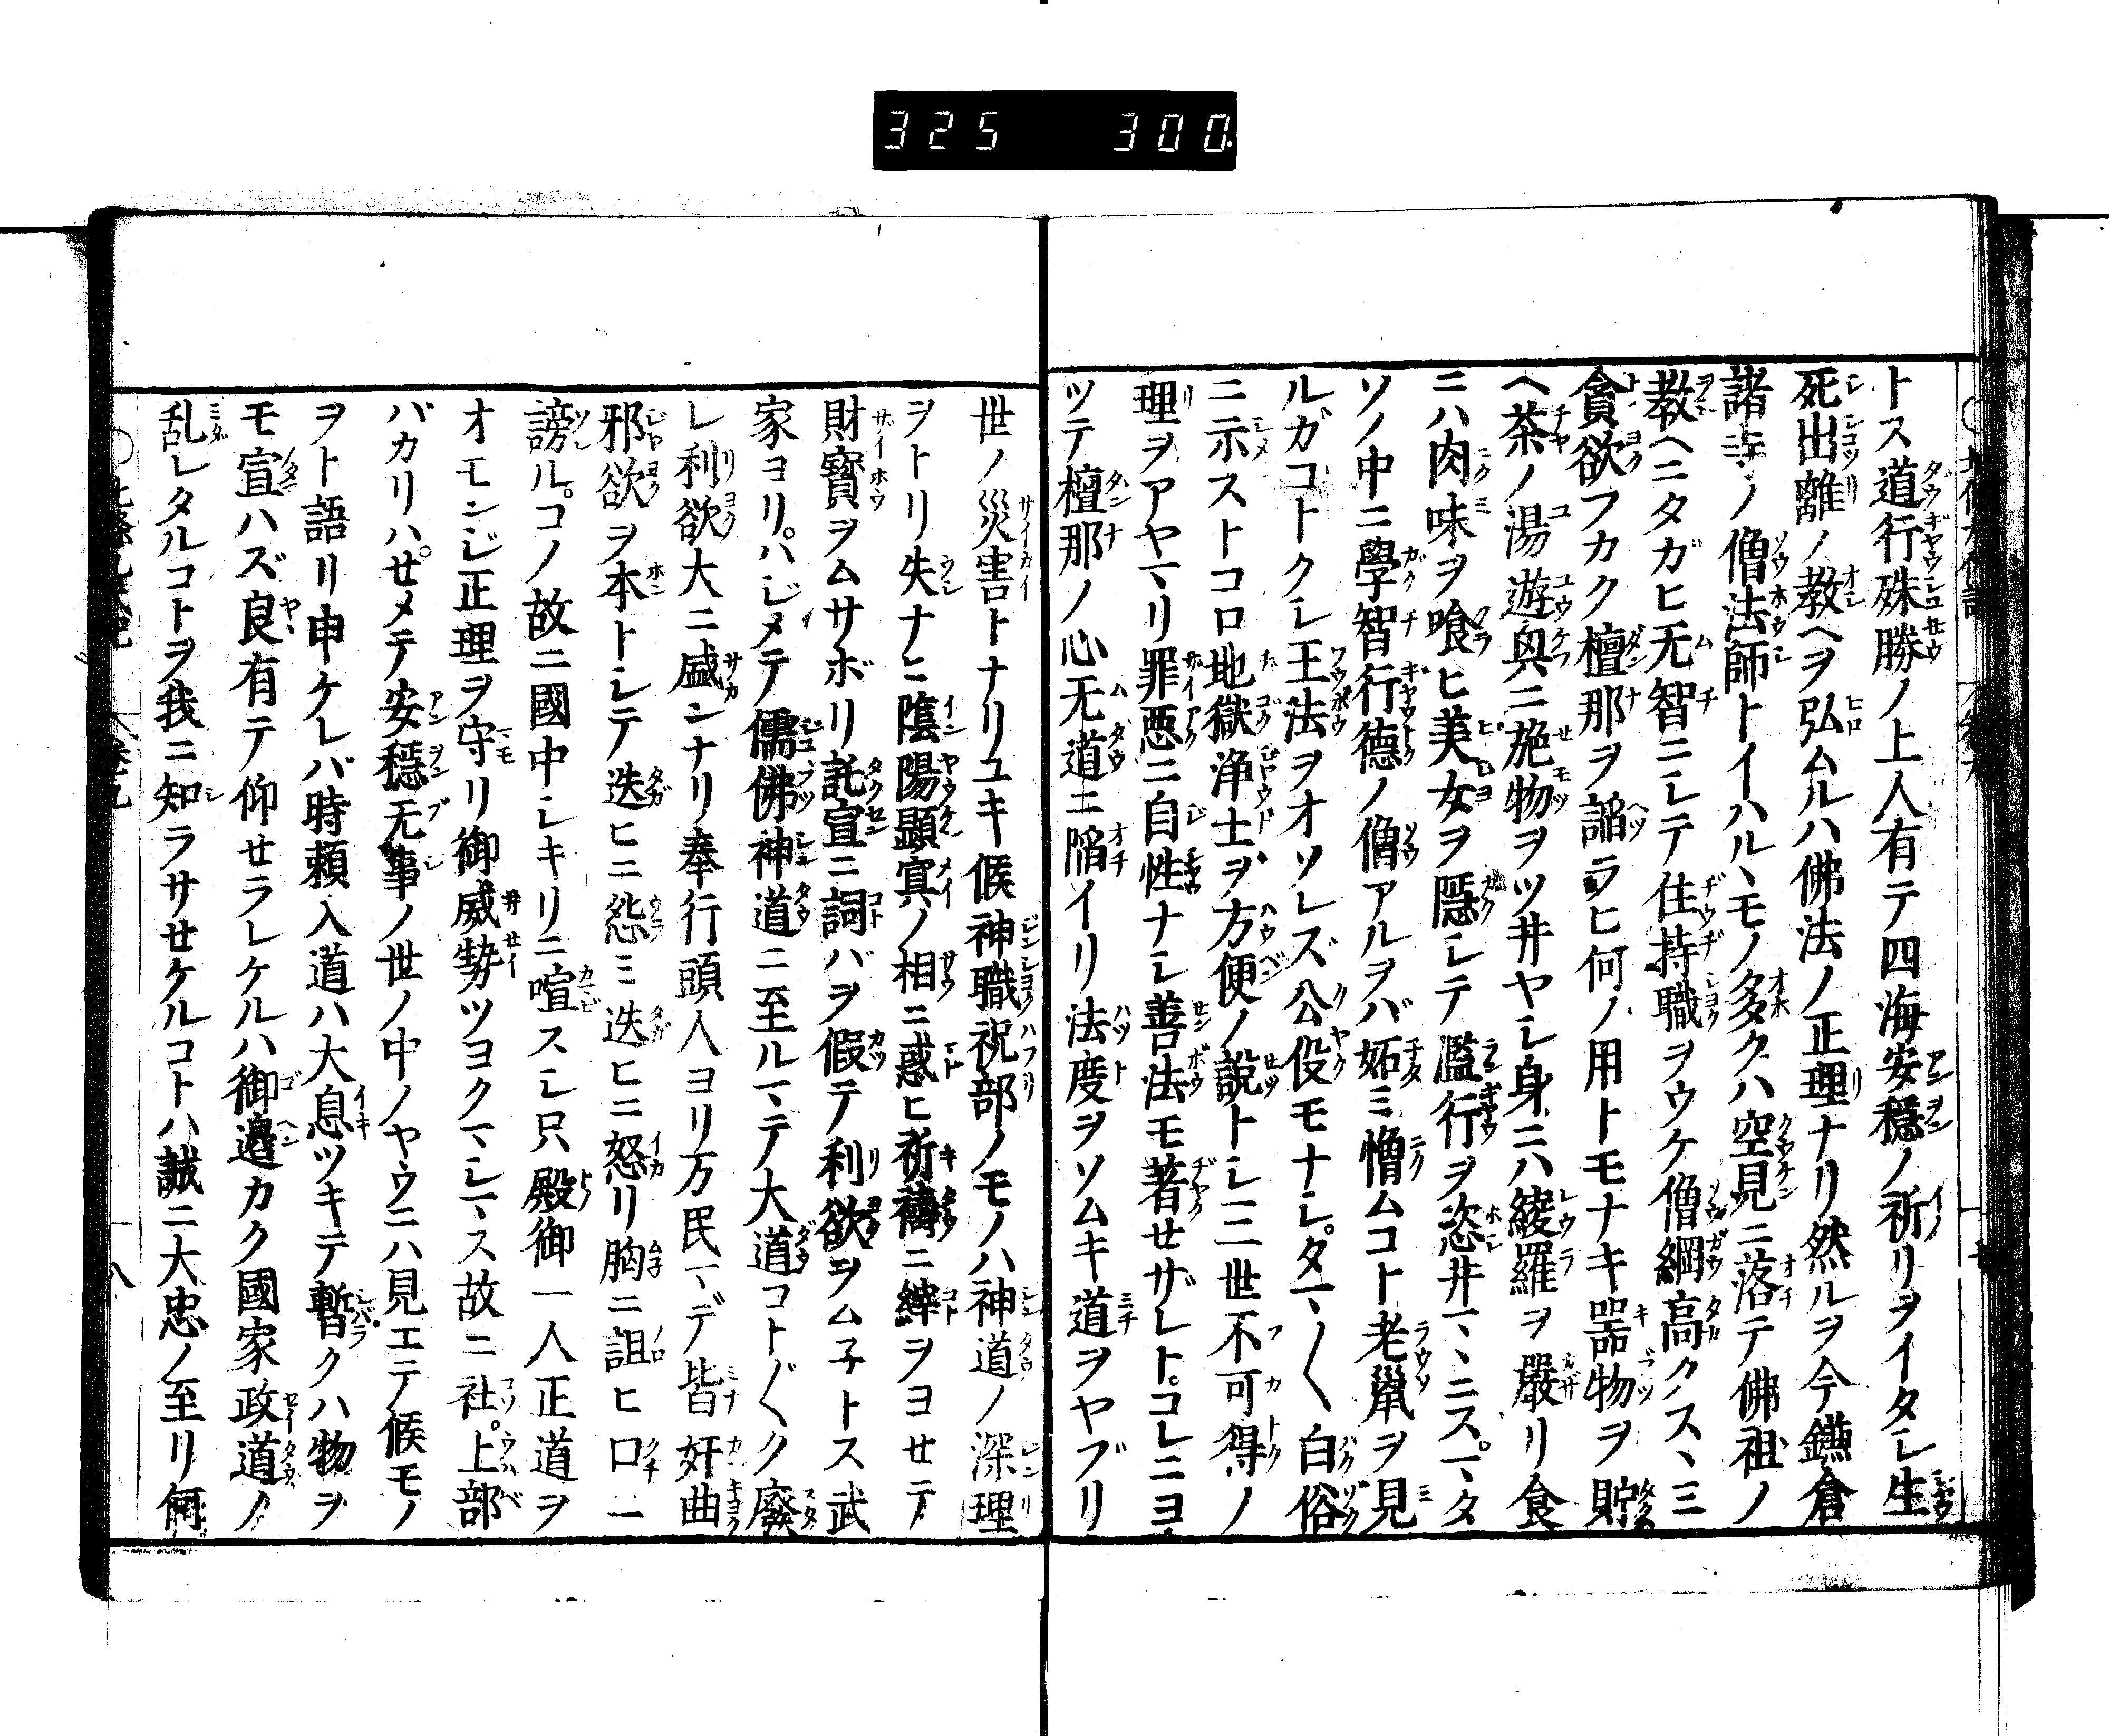 325 300
トス道行殊勝ノ上人有テ四海安穏ノ祈リヲイタシ生
死出離ノ教ヘヲ弘ムルハ佛法ノ正理ナリ然ルヲ今鎌倉
諸寺ノ僧法師トイハルヽモノ多クハ空見ニ落テ佛祖ノ
教ヘニタガヒ无智ニシテ住持職ヲウケ僧綱高クスヽミ
貪欲フカク檀那ヲ謟ラヒ何ノ用トモナキ噐物ヲ貯
ヘ茶ノ湯遊興ニ施物ヲツ井ヤシ身ニハ綾羅ヲ嚴リ食
ニハ肉味ヲ喰ヒ美女ヲ隠シテ濫行ヲ恣井マヽニス。マタ
ソノ中ニ學智行徳ノ僧アルヲバ妬ミ憎ムコト老鼠ヲ見
ルガコトクシ王法ヲオソレズ公役モナシ。タマ〳〵白俗
ニ示ストコロ地獄浄土ヲ方便ノ説トシ三世不可得ノ
理ヲアヤマリ罪悪ニ自性ナシ善法モ著セザレト。コレニヨ
ツテ檀那ノ心无道ニ陥イリ法度ヲソムキ道ヲヤブリ
世ノ災害トナリユキ候神職祝部ノモノハ神道ノ深理
ヲトリ失ナヒ陰陽顯冥ノ相ニ惑ヒ祈禱ニ縡ヲヨセテ
財寳ヲムサボリ託宣ニ詞バヲ假テ利欲ヲムネトス武
家ヨリ。ハジメテ儒佛神道ニ至ルマテ大道コト〴〵ク廢
レ利欲大ニ盛ンナリ奉行頭人ヨリ万民マデ皆奸曲
邪欲ヲ本トシテ迭ヒニ怨ミ迭ヒニ怒リ胸ニ詛ヒ口ニ
謗ル。コノ故ニ國中シキリニ喧スシ只殿御一人正道ヲ
オモンジ正理ヲ守リ御威勢ツヨクマシマス故ニ社。上部
バカリハ。せメテ安穏无事ノ世ノ中ノヤウニハ見エテ候モノ
ヲト語リ申ケレバ時頼入道ハ大息ツキテ暫クハ物ヲ
モ宣ハズ良有テ仰せラレケルハ御邉カク國家政道ノ
乱レタルコトヲ我ニ知ラサせケルコトハ誠ニ大忠ノ至リ何